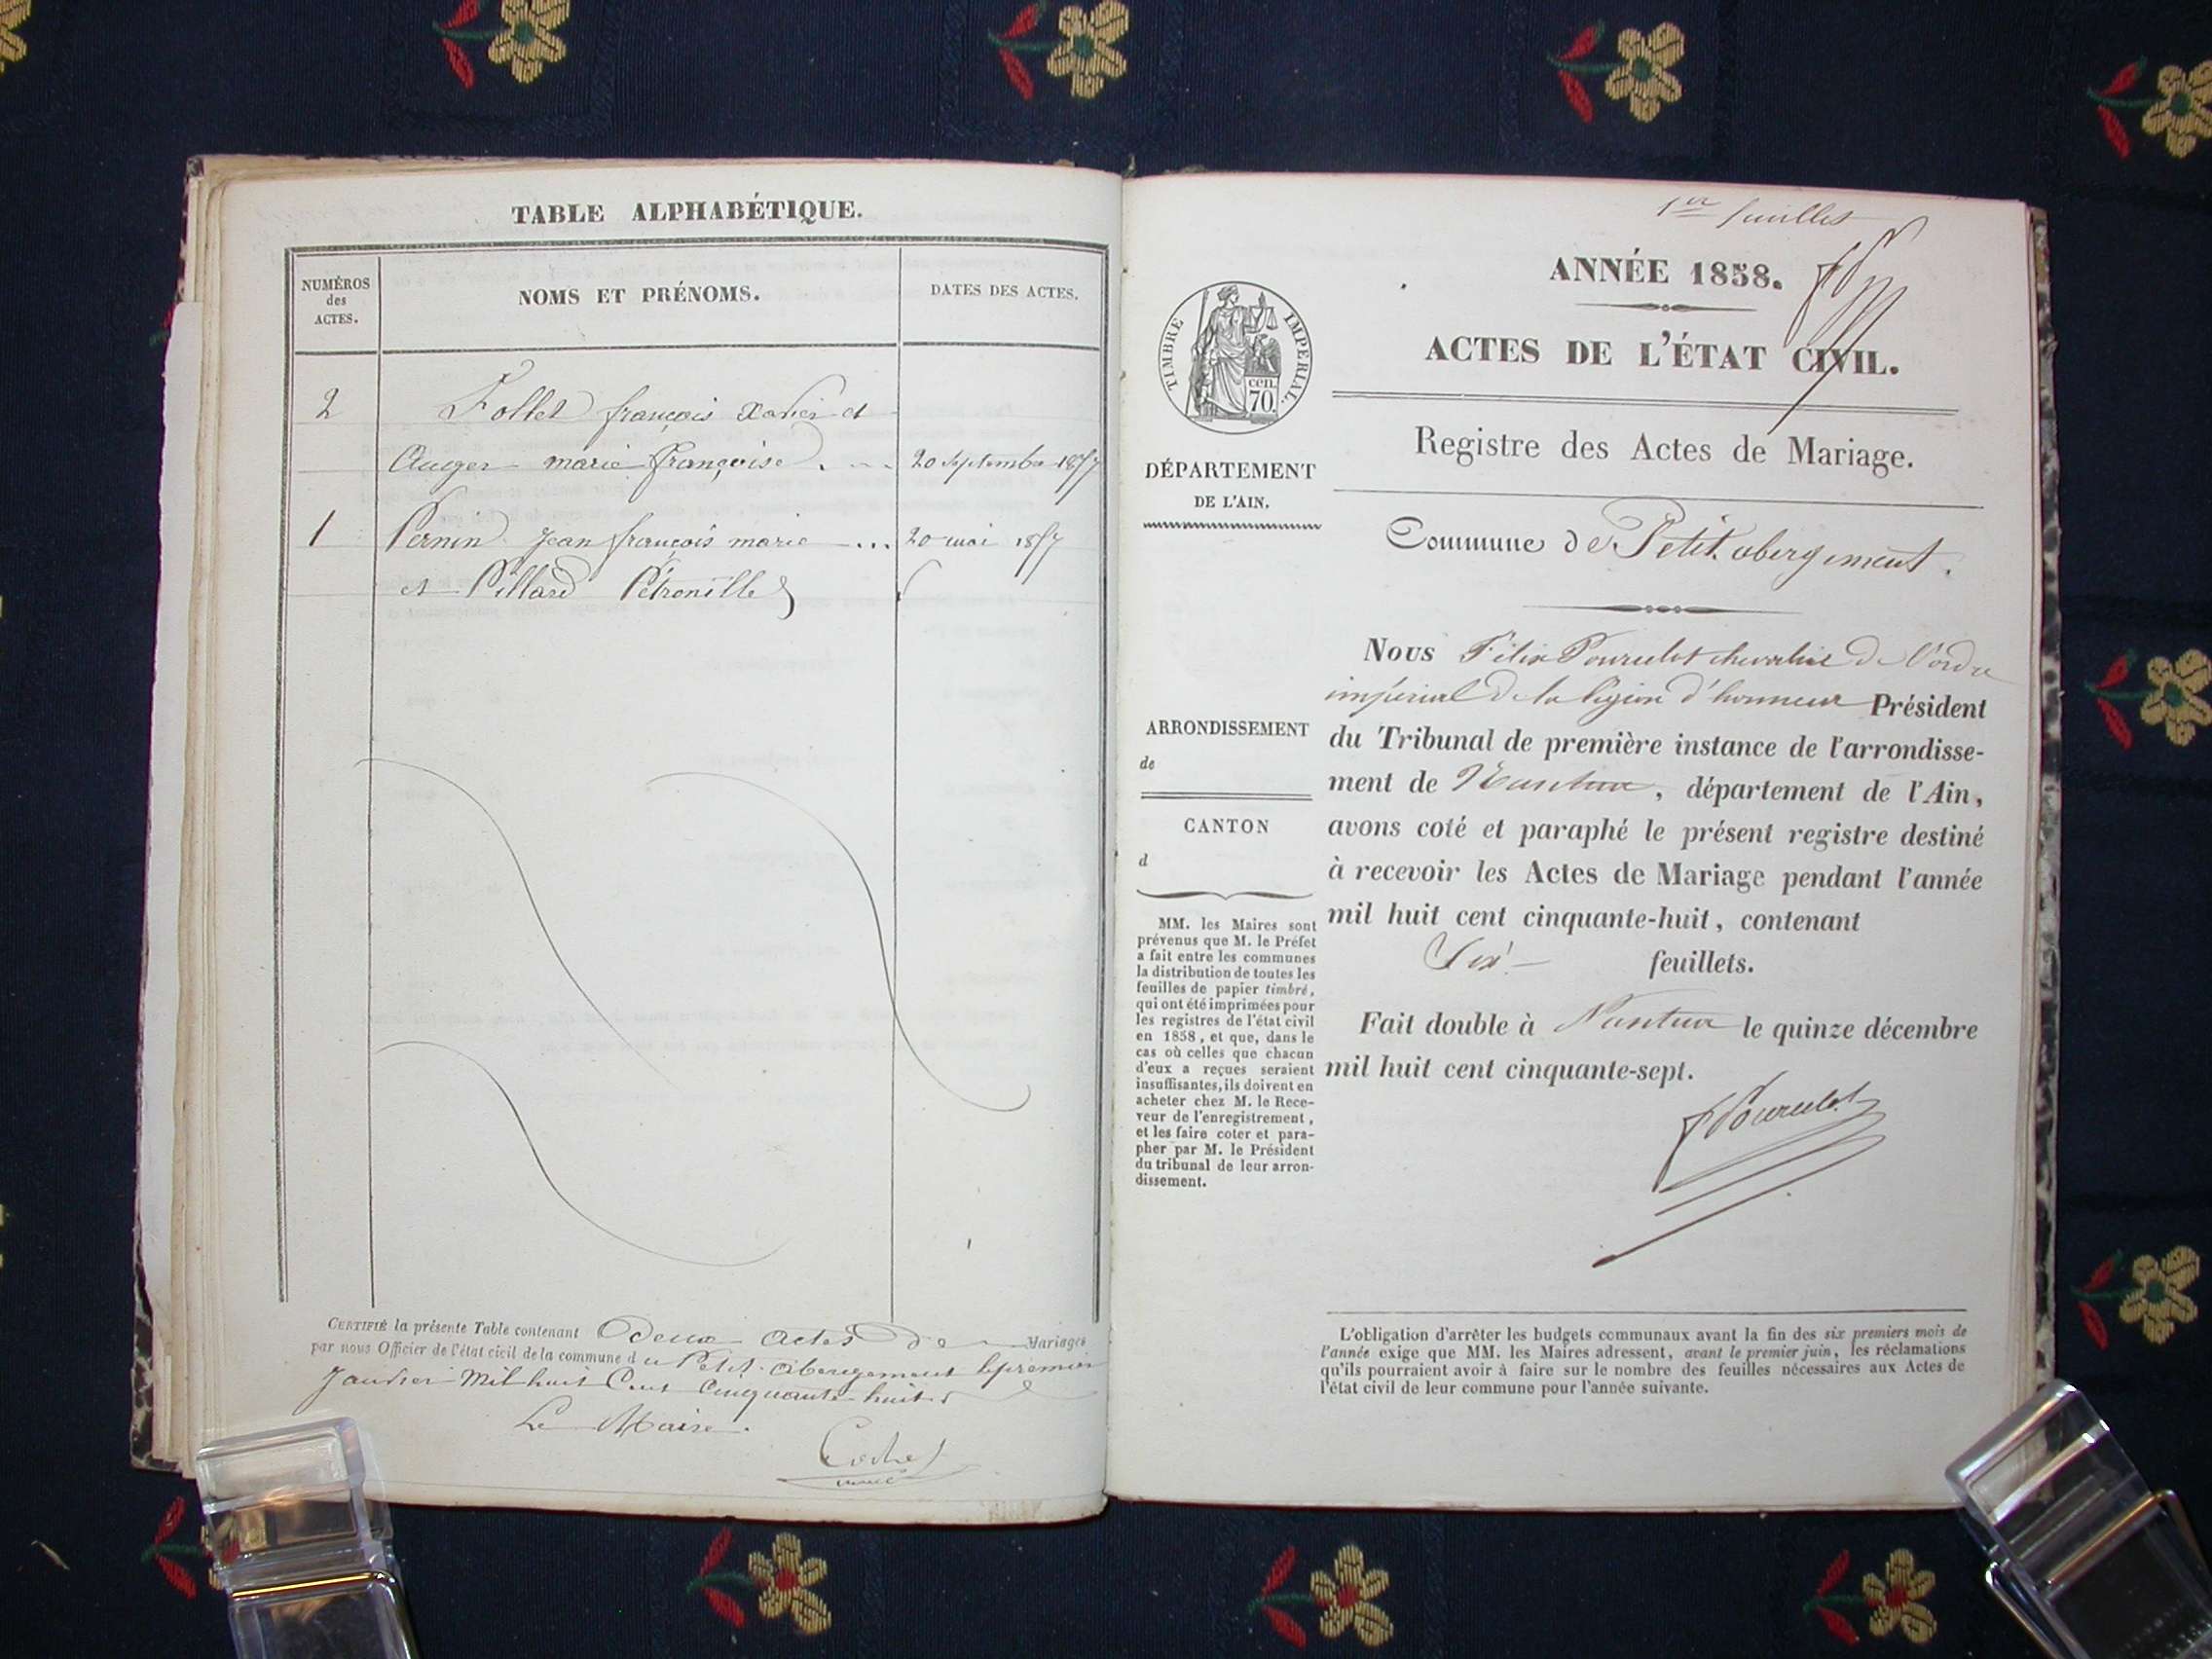 TABLE ALPHABÉTIQUE.
NUMÉROS
des
ACTES.
NOMS ET PRÉNOMS.
DATES DES ACTES.
2 Follet françois Xavier et
Auger marie françoise . - - 20 septembre 1857
1 Pernin Jean françois marie ... 20 mai 1857
et Pillard Pétronille
CERTIFIÉ la présente Table contenant deux actes de Mariages
par nous Officier de l'état civil de la commune du Petit-abergement le premier
Janvier mil huit Cent cinquante huit
Le Maire.
1er feuillet
ANNÉE 1858.
ACTES DE L'ÉTAT CIVIL.
TIMBRE IMPERIAL.
cen.
70.
Registre des Actes de Mariage.
DÉPARTEMENT
DE L'AIN.
Commune de Petit abergement.
ARRONDISSEMENT
de
CANTON
d
MM. les Maires sont
prévenus que M. le Préfet
a fait entre les communes
la distribution de toutes les
feuilles de papier timbré,
qui ont été imprimées pour
les registres de l'état civil
en 1858, et que, dans le
cas où celles que chacun
d'eux a reçues seraient
insuffisantes, ils doivent en
acheter chez M. le Rece-
veur de l'enregistrement,
et les faire coter et para-
pher par M. le Président
du tribunal de leur arron-
dissement.
Nous Félix Pourcelot chevalier de l'ordre
impérial de la légion d'honneur Président
du Tribunal de première instance de l'arrondisse-
ment de Nantua, département de l'Ain,
avons coté et paraphé le présent registre destiné
à recevoir les Actes de Mariage pendant l'année
mil huit cent cinquante-huit, contenant
Six feuillets.
Fait double à Nantua le quinze décembre
mil huit cent cinquante-sept.
F Pourcelot
L'obligation d'arrêter les budgets communaux avant la fin des six premiers mois de
l'année exige que MM. les Maires adressent, avant le premier juin, les réclamations
qu'ils pourraient avoir à faire sur le nombre des feuilles nécessaires aux Actes de
l'état civil de leur commune pour l'année suivante.